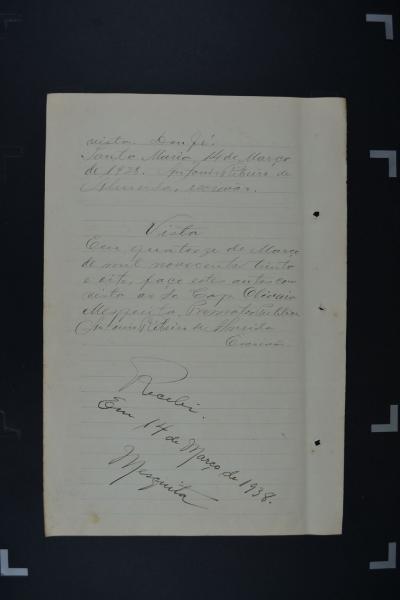 vista. Dou fé.
Santa Maria, 14 de Março
de 1938. Antonio Ribeiro de
Almeida, escrivão.
Vista
Em quatorze de Março
de mil novecentos trinta
e oito, faço estes autos com
vista ao Sr. Cap. Olivaio
Mesquita, Promotor Publico
Antonio Ribeiro de Almeida
Escrivão
Recebi.
Em 14 de Março de 1938.
Mesquita